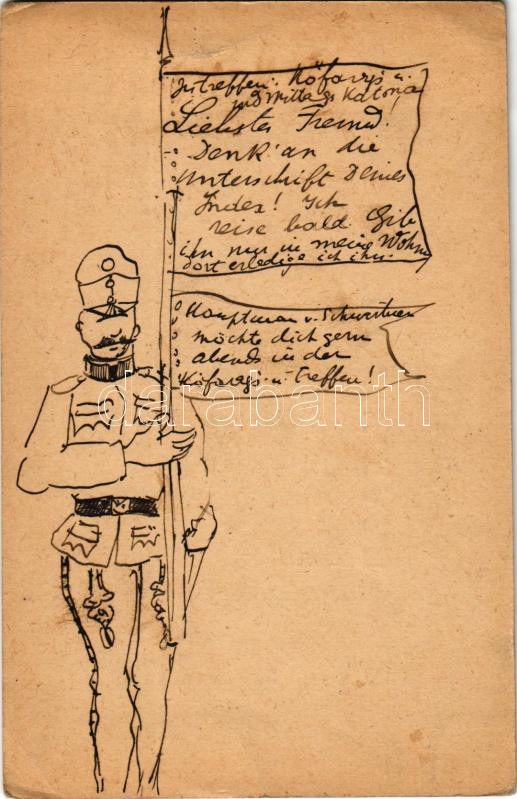 zu treffen: Kőfarags u.
und Mittags Katona
Liebster Freund!
Denk' an die
Unterschrift Deines
Index! Ich
reise bald. Gib
ihn nur in meine Wohn
dort erledige ich ihn.
Hauptmann v.
möchte dich gern
abends in der
Kőfarags u. treffen!
darabanth